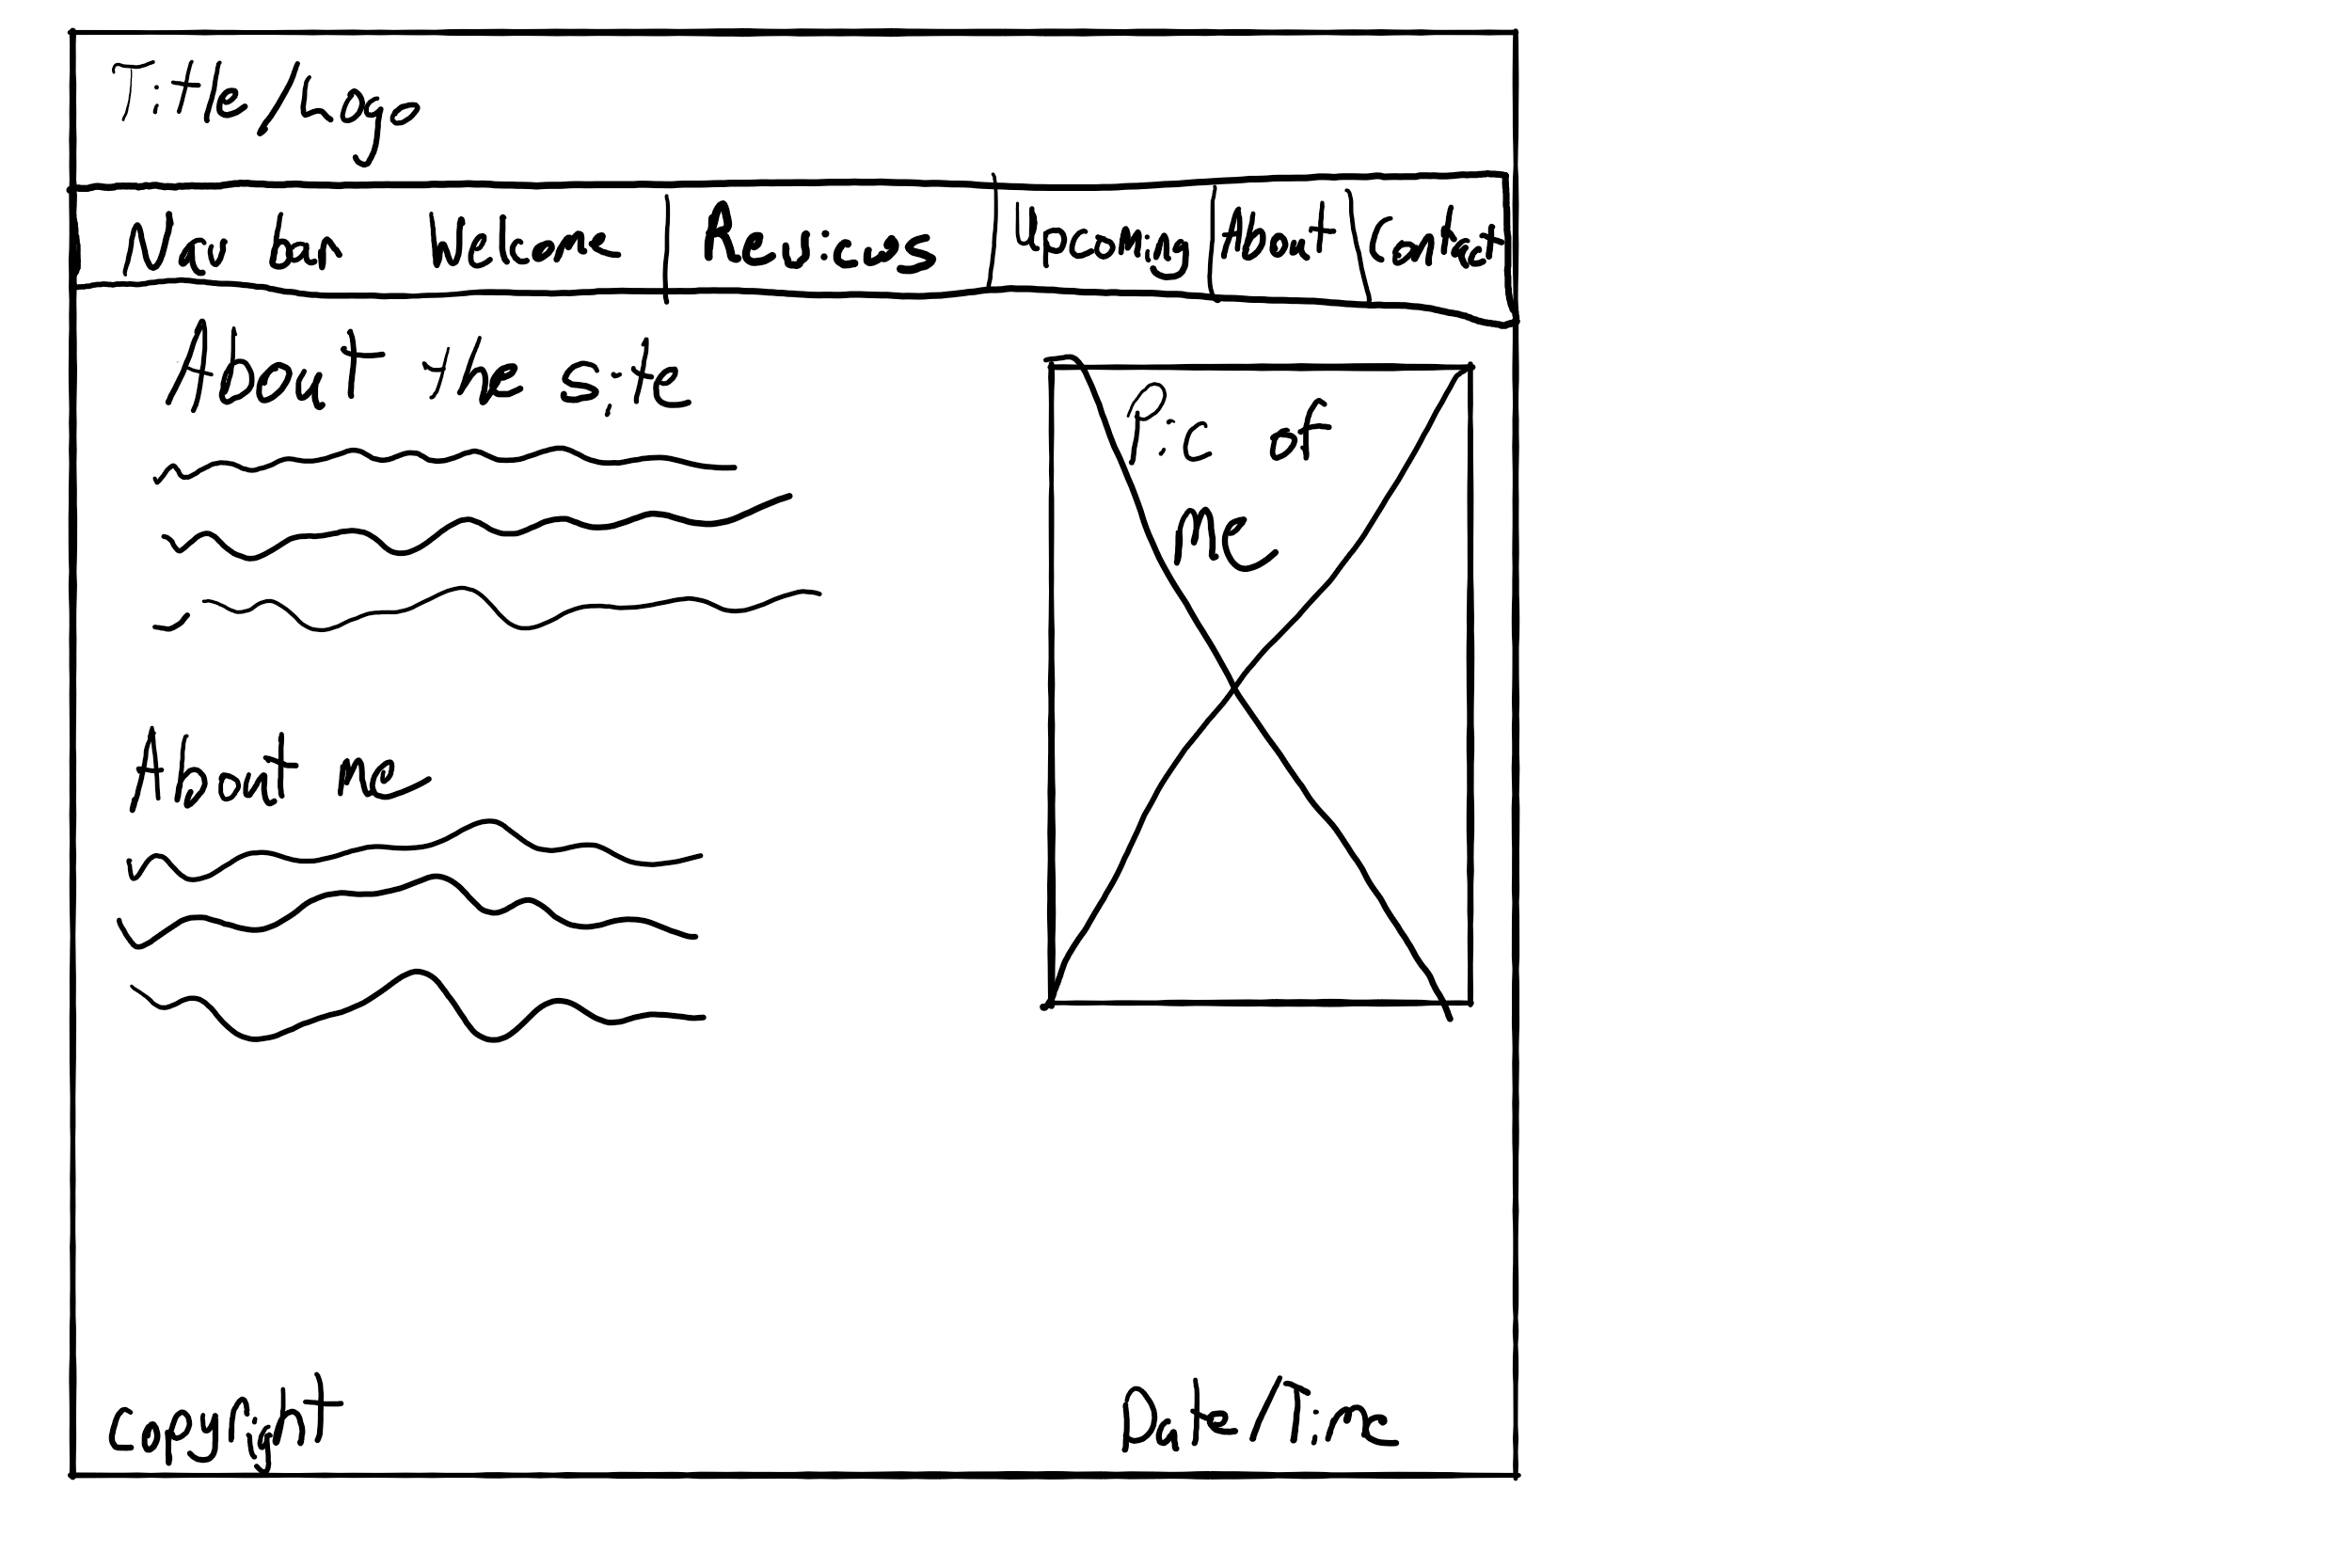 Title/Logo
Nav bar Welcome Reviews Upcoming About Contact
About the site
Pic of
me
About me
Copyright Date/Time